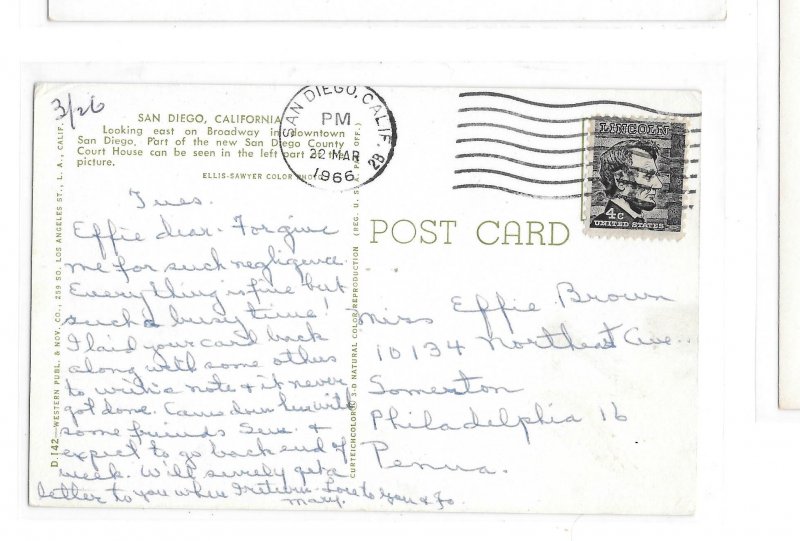 3/26
SAN DIEGO, CALIFORNIA
Looking east on Broadway in downtown
San Diego, Part of the new San Diego County
Court House can be seen in the left part of the
picture.
ELLIS-SAWYER COLOR PHOTO
SAN DIEGO, CALIF.
PM
22 MAR
1966
2B
LINCOLN
4c
UNITED STATES
POST CARD
D.142—WESTERN PUBL. & NOV. CO., 259 SO. LOS ANGELES ST., L. A., CALIF.
CURTEICHCOLOR® 3-D NATURAL COLOR REPRODUCTION (REG. U. S. A. PAT. OFF.)
Tues.
Effie dear. Forgive
me for such negligence.
Everything is fine but
such a busy time!
I laid your card back
along with some others
to write a note & it never
got done. Came down here with
some friends Sun. &
expect to go back end of
week. Will surely get a
letter to you when I return. Love to you & Jo.
Mary.
Miss Effie Brown
10134 Northeast Ave.
Somerton
Philadelphia 16
Penna.